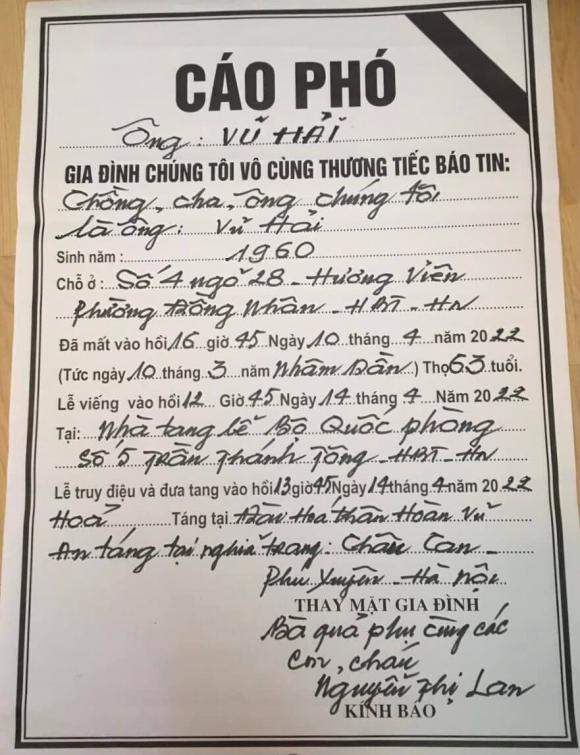 CÁO PHÓ
Ông: VŨ HẢI
GIA ĐÌNH CHÚNG TÔI VÔ CÙNG THƯƠNG TIẾC BÁO TIN:
Chồng, cha, ông chúng tôi
là ông: Vũ Hải
Sinh năm: 1960
Chỗ ở: Số 4 ngõ 28 - Hương Viên
Phường Đồng Nhân - HBT - HN
Đã mất vào hồi 16 giờ 45 Ngày 10 tháng 4 năm 2022
(Tức ngày 10 tháng 3 năm Nhâm Dần) Thọ 63 tuổi.
Lễ viếng vào hồi 12 Giờ 45 Ngày 14 tháng 4 Năm 2022
Tại: Nhà tang lễ Bộ Quốc phòng
Số 5 Trần Thánh Tông - HBT - HN
Lễ truy điệu và đưa tang vào hồi 13 giờ 45 Ngày 14 tháng 4 năm 2022
Hoả Táng tại Đài Hoá thân Hoàn Vũ
An táng tại nghĩa trang: Châu Can -
Phú Xuyên - Hà Nội
THAY MẶT GIA ĐÌNH
Bà quả phụ cùng các
con, cháu
Nguyễn Thị Lan
KÍNH BÁO